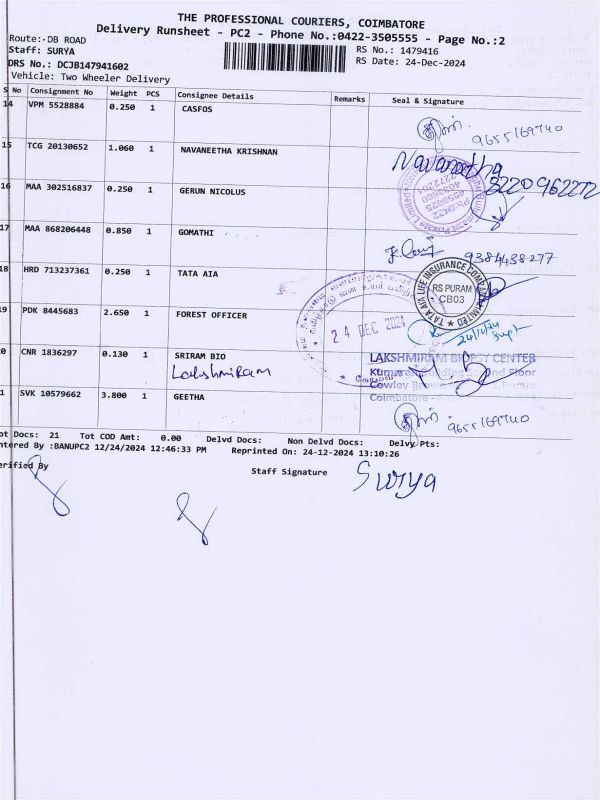 THE PROFESSIONAL COURIERS, COIMBATORE
Delivery Runsheet - PC2 - Phone No.:0422-3505555 - Page No.:2
Route:-DB ROAD
Staff: SURYA RS No.: 1479416
DRS No.: DCJB147941602 RS Date: 24-Dec-2024
Vehicle: Two Wheeler Delivery
S No Consignment No Weight PCS Consignee Details Remarks Seal & Signature
14 VPM 5528884 0.250 1 CASFOS
9655169740
15 TCG 20130652 1.060 1 NAVANEETHA KRISHNAN
16 MAA 302516837 0.250 1 GERUN NICOLUS
17 MAA 868206448 0.850 1 GOMATHI
9384438277
18 HRD 713237361 0.250 1 TATA AIA
TATA AIA LIFE INSURANCE COMPANY LIMITED
RS PURAM
CB03
9 PDK 8445683 2.650 1 FOREST OFFICER
24 DEC 2024
24/12/24
0 CNR 1836297 0.130 1 SRIRAM BIO
LakshmiRam
LAKSHMIRAM BIOPSY CENTER
1 SVK 10579662 3.800 1 GEETHA
9655169740
ot Docs: 21 Tot COD Amt: 0.00 Delvd Docs: Non Delvd Docs: Delvy Pts:
ntered By :BANUPC2 12/24/2024 12:46:33 PM Reprinted On: 24-12-2024 13:10:26
erified By Staff Signature Surya